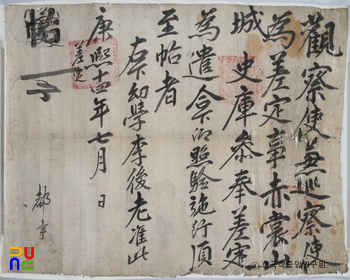 觀察使兼巡察使
為差定事赤裳
城史庫參奉差定
為遣合下仰照驗施行須
至帖者
右下幼學李後老准此
康熙十四年七月 日
差定
帖
都事